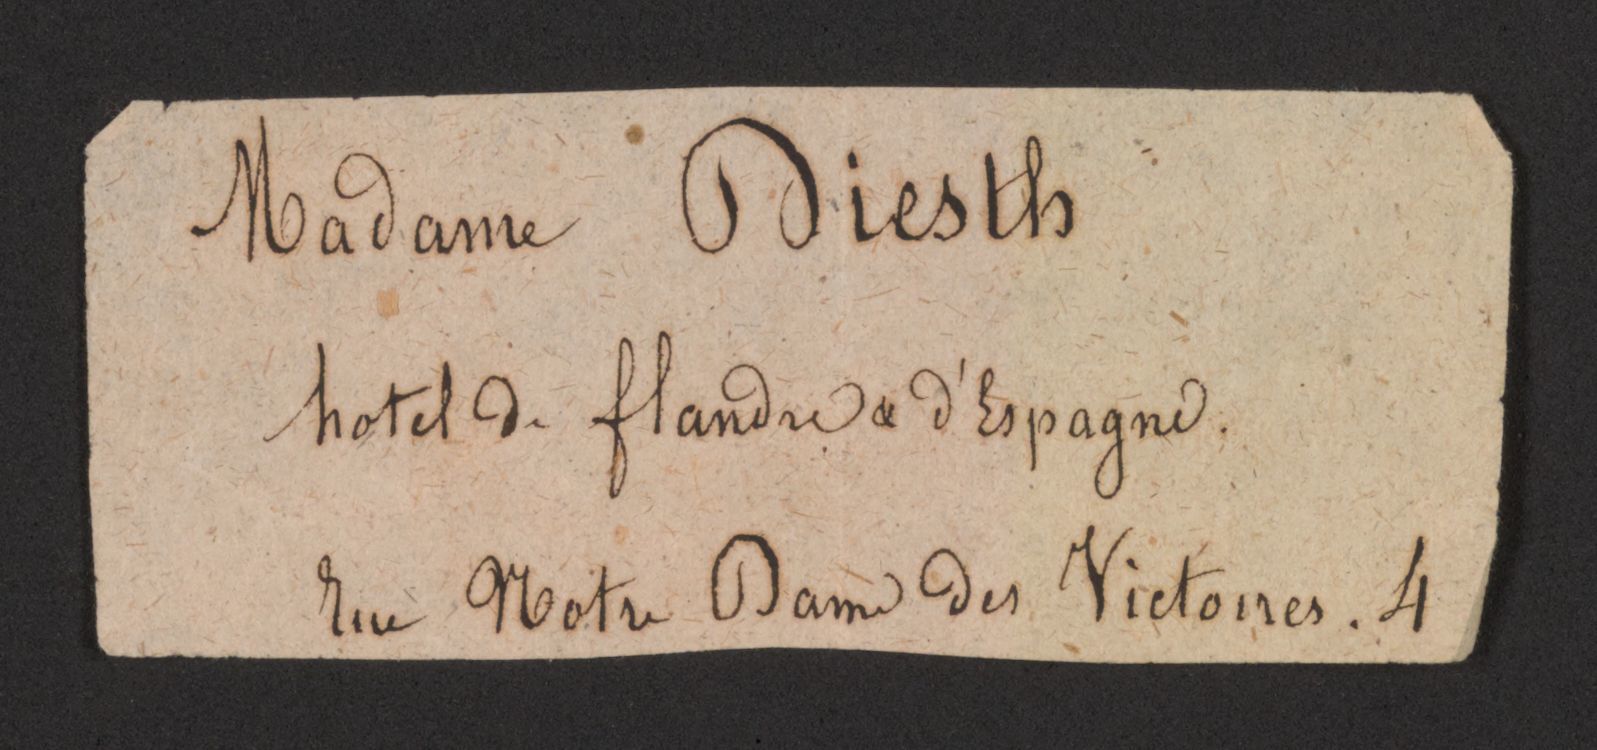 Madame Diesth
hotel de flandre & d'Espagne.
rue Notre Dame des Victoires. 4